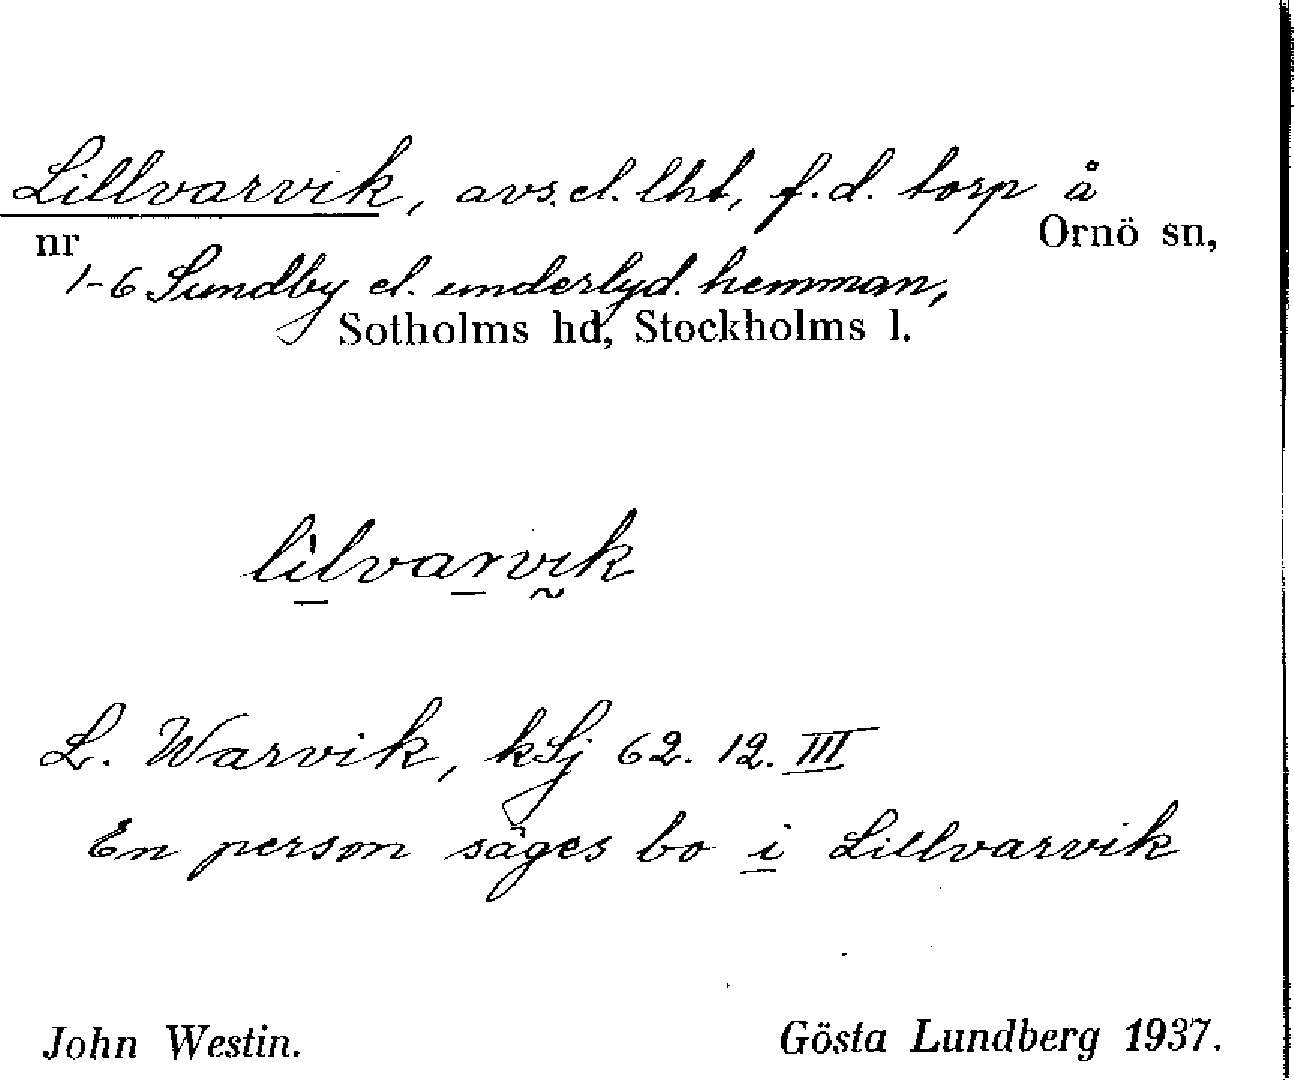 Lillvarvik, avs. el. lht, f.d. torp å
Ornö sn,
nr
1-6 Sundby el. underlyd. hemman,
Sotholms hd, Stockholms l.
lilvarvik
L. Warvik, kSj 62. 12. III
En person säges bo i Lillvarvik
John Westin.
Gösta Lundberg 1937.